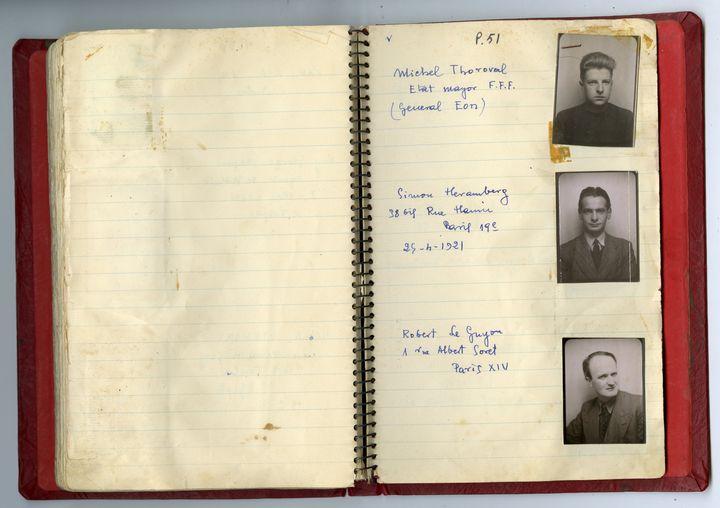 P.51
Michel Thoroval
Etat mayor F.F.F.
(General Eon)
Simon Heramberg
38 bis Rue
Paris 19e
25-4-1921
Robert Le Guyon
1 rue Albert Sorel
Paris XIV